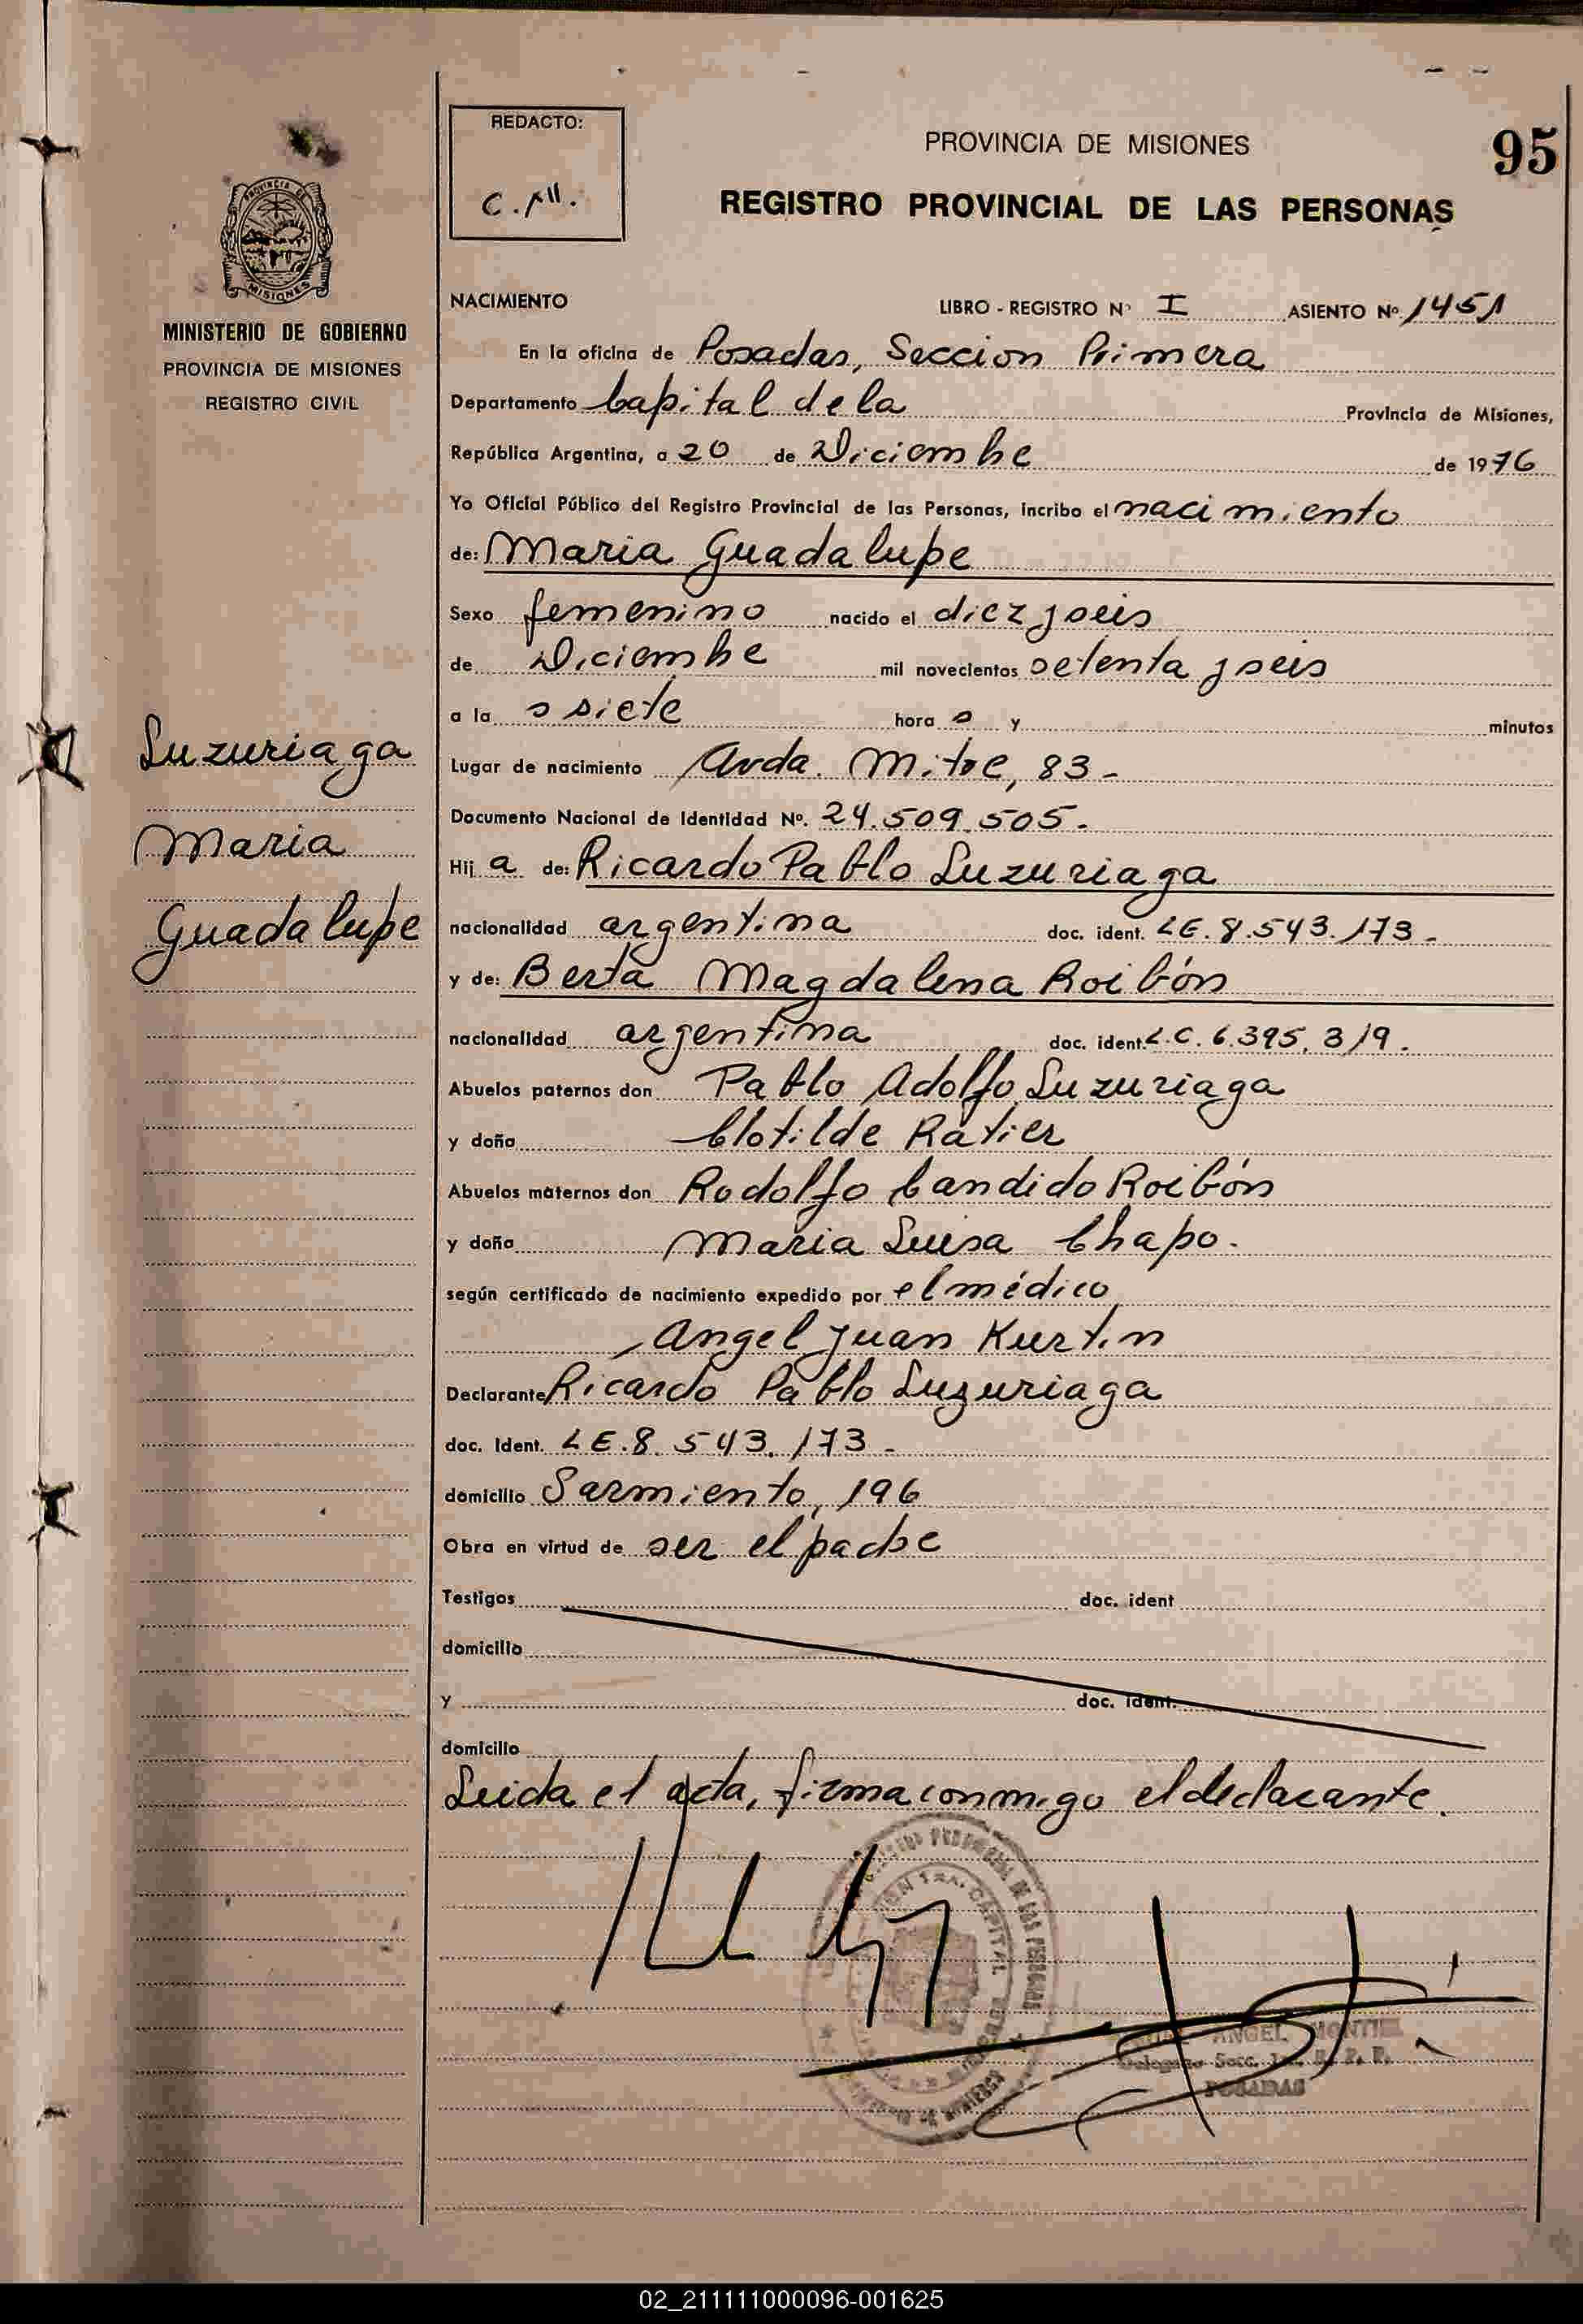 REDACTO:
PROVINCIA DE MISIONES
95
REGISTRO PROVINCIAL DE LAS PERSONAS
PROVINCIA DE
MISIONES
MINISTERIO DE GOBIERNO
PROVINCIA DE MISIONES
REGISTRO CIVIL
NACIMIENTO LIBRO - REGISTRO Nº I ASIENTO Nº 1451
En la oficina de Posadas, Seccion Primera
Departamento Capital de la Provincia de Misiones,
República Argentina, a 20 de Diciembre de 1976
Yo Oficial Público del Registro Provincial de las Personas, incribo el nacimiento
de: Maria Guadalupe
Sexo femenino nacido el diez y seis
de Diciembre mil novecientos setenta y seis
a la s siete hora s y minutos
Luzuriaga
Maria
Guadalupe
Lugar de nacimiento Avda. Mitre, 83-
Documento Nacional de Identidad Nº. 24.509.505.-
Hij a de: Ricardo Pablo Luzuriaga
nacionalidad argentina doc. ident. LE. 8.543.173-
y de: Berta Magdalena Roibón
nacionalidad argentina doc. ident. L.C. 6.395.319.
Abuelos paternos don Pablo Adolfo Luzuriaga
y doña Clotilde Ratier
Abuelos maternos don Rodolfo Candido Roibón
y doña Maria Luisa Chapo.
según certificado de nacimiento expedido por el médico
Angel Juan Kurtin
Declarante Ricardo Pablo Luzuriaga
doc. Ident. LE. 8.543.173-
domicilio Sarmiento, 196
Obra en virtud de ser el padre
Testigos doc. ident
domicilio
y doc. ident.
domicilio
Leida el acta, firma conmigo el declarante.
ANGEL MONTIEL
POSADAS
02_211111000096-001625